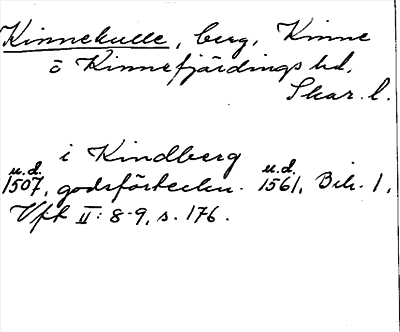 Kinnekulle, berg, Kinne
o Kinnefjärdings hd.
Skar. l.
i Kindberg
u.d. u.d.
1507, godsförteckn. 1561, Bih. 1,
Vft II: 8-9, s. 176.